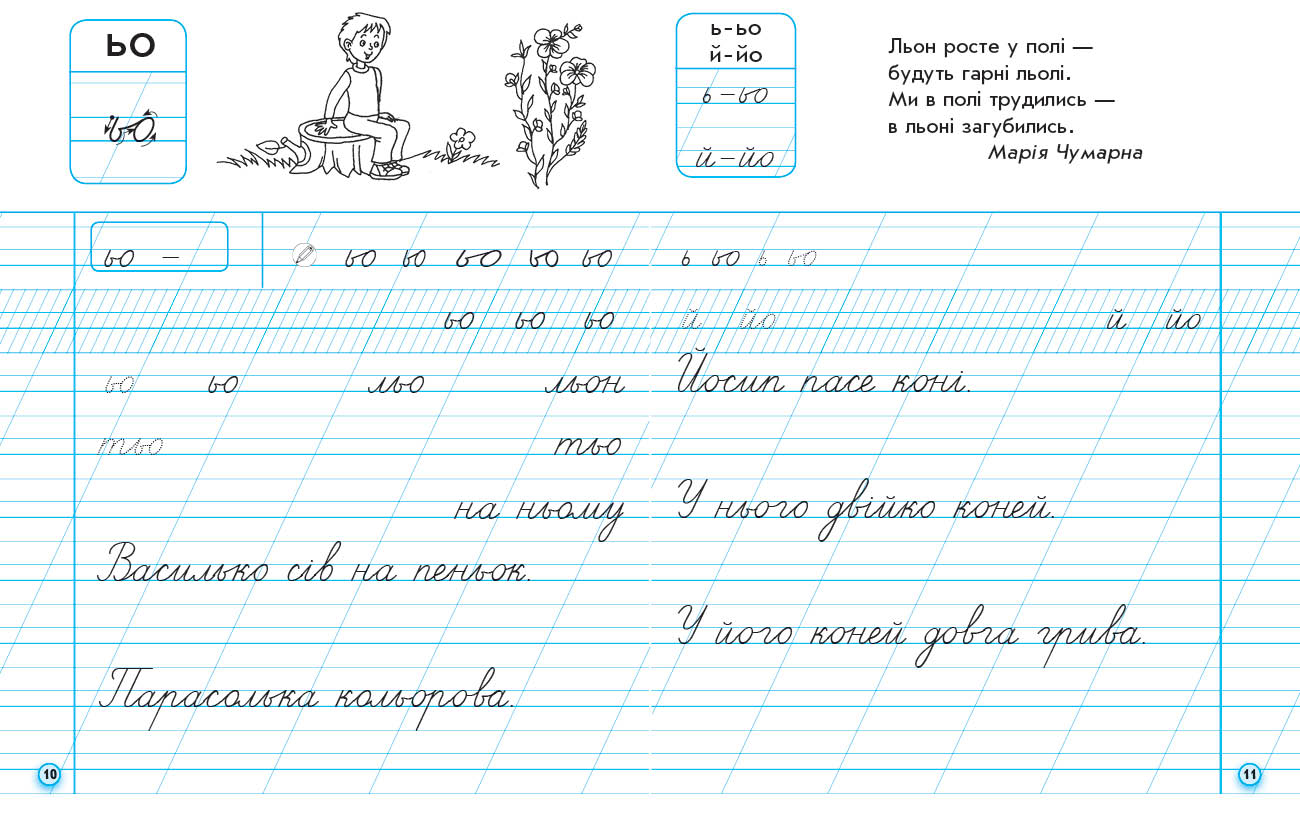 ьо
ьо
ь-ьо
й-йо
ь – ьо
й – йо
Льон росте у полі —
будуть гарні льолі.
Ми в полі трудились —
в льоні загубились.
Марія Чумарна
ьо – ьо ьо ьо ьо ьо
ьо ьо ьо
ьо ьо льо льон
тьо тьо
на ньому
Василько сів на пеньок.
Парасолька кольорова.
10
ь ьо ь ьо
й йо й йо
Йосип пасе коні.
У нього двійко коней.
У його коней довга грива.
11